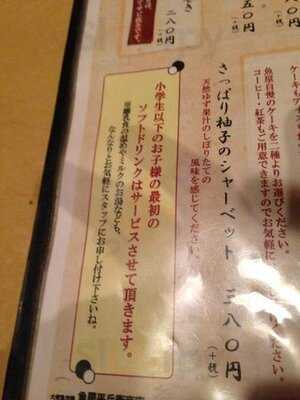 ケーキもア
魚原自慢のケーキを二種よりお選びください。
コーヒー・紅茶もご用意できますのでお気軽に
さっぱり柚子のシャーベット 三八〇円
(+税)
天然ゆず果汁のしぼりたての
風味を感じてください。
五〇円
(+税)
二八〇円
(+税)
小学生以下のお子様の最初の
ソフトドリンクはサービスさせて頂きます。
のお湯なども、
なんなりとお気軽にスタッフにお申し付け下さいね。